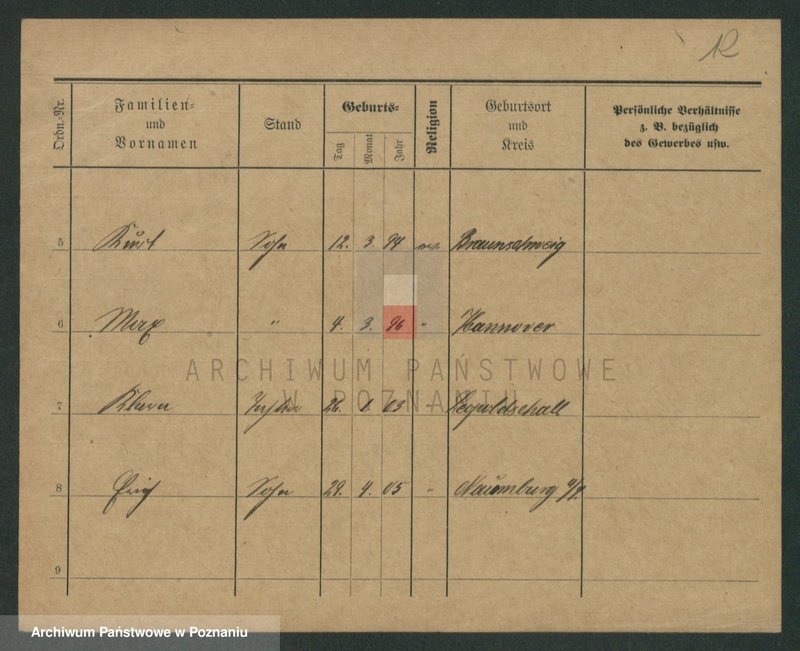 12
Ordn.-Nr.
Familien-
und
Vornamen
Stand
Geburts-
Tag
Monat
Jahr
Religion
Geburtsort
und
Kreis
Persönliche Verhältnisse
z. B. bezüglich
des Gewerbes usw.
5 Kurt Sohn 12. 3. 94 ev. Braunschweig
6 Max " 4. 3. 96 " Hannover
ARCHIWUM PAŃSTWOWE
W POZNANIU
7 Klara Tochter 26. 1. 03 " Leopoldshall
8 Erich Sohn 28. 4. 05 " Naumburg a/S.
9
Archiwum Państwowe w Poznaniu